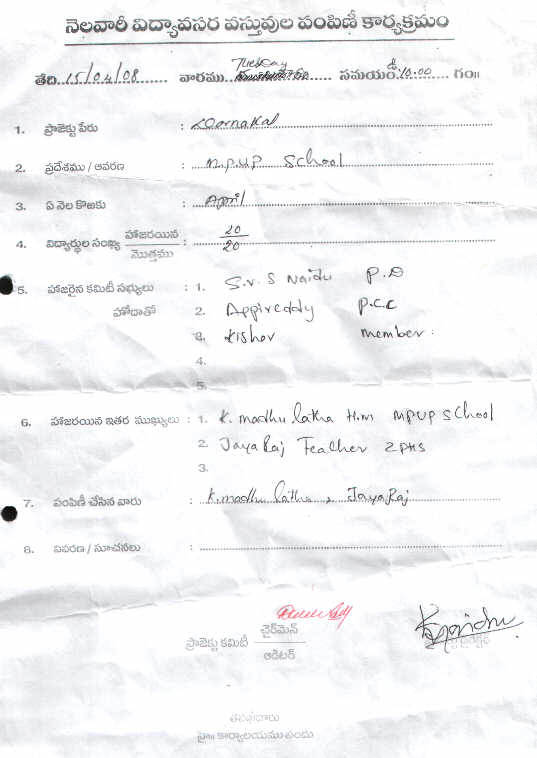 నెలవారీ విద్యావసర వస్తువుల పంపిణీ కార్యక్రమం
తేది. 15/04/08 ........ వారము Tuesday ...... సమయం 10.00 .... గం॥
1. ప్రాజెక్టు పేరు : Dornakal
2. ప్రదేశము / ఆవరణ : M.P.U.P School
3. ఏ నెల కొఱకు : April
4. విద్యార్థుల సంఖ్య హాజరయిన / మొత్తము : 20 / 20
5. హాజరైన కమిటీ సభ్యులు : 1. S.V.S Naidu P.D
హోదాతో 2. Appireddy P.C.C
3. Kishor member :
4.
5.
6. హాజరయిన ఇతర ముఖ్యులు : 1. K. madhu latha H.M MPUP School
2. Jaya Raj Teacher ZPHS
3.
7. పంపిణీ చేసిన వారు : K. madhu latha, Jaya Raj
8. వివరణ / సూచనలు :
ప్రాజెక్టు కమిటీ చైర్‌మెన్ / ఆడిటర్